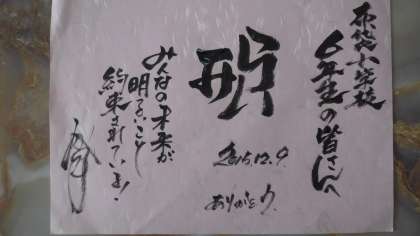 布袋小学校
6年生の皆さんへ
2015.12.9
ありがとう
みんなの未来が
明るいこと
約束されている!